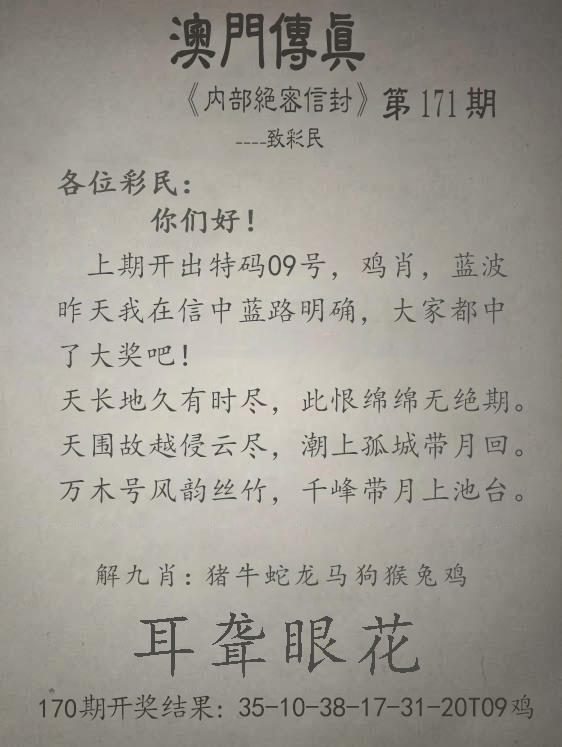 澳門傳眞
《内部絕密信封》第171期
----致彩民
各位彩民：
你们好！
上期开出特码09号，鸡肖，蓝波
昨天我在信中蓝路明确，大家都中
了大奖吧！
天长地久有时尽，此恨绵绵无绝期。
天围故越侵云尽，潮上孤城带月回。
万木号风韵丝竹，千峰带月上池台。
解九肖：猪牛蛇龙马狗猴兔鸡
耳聋眼花
170期开奖结果：35-10-38-17-31-20T09鸡